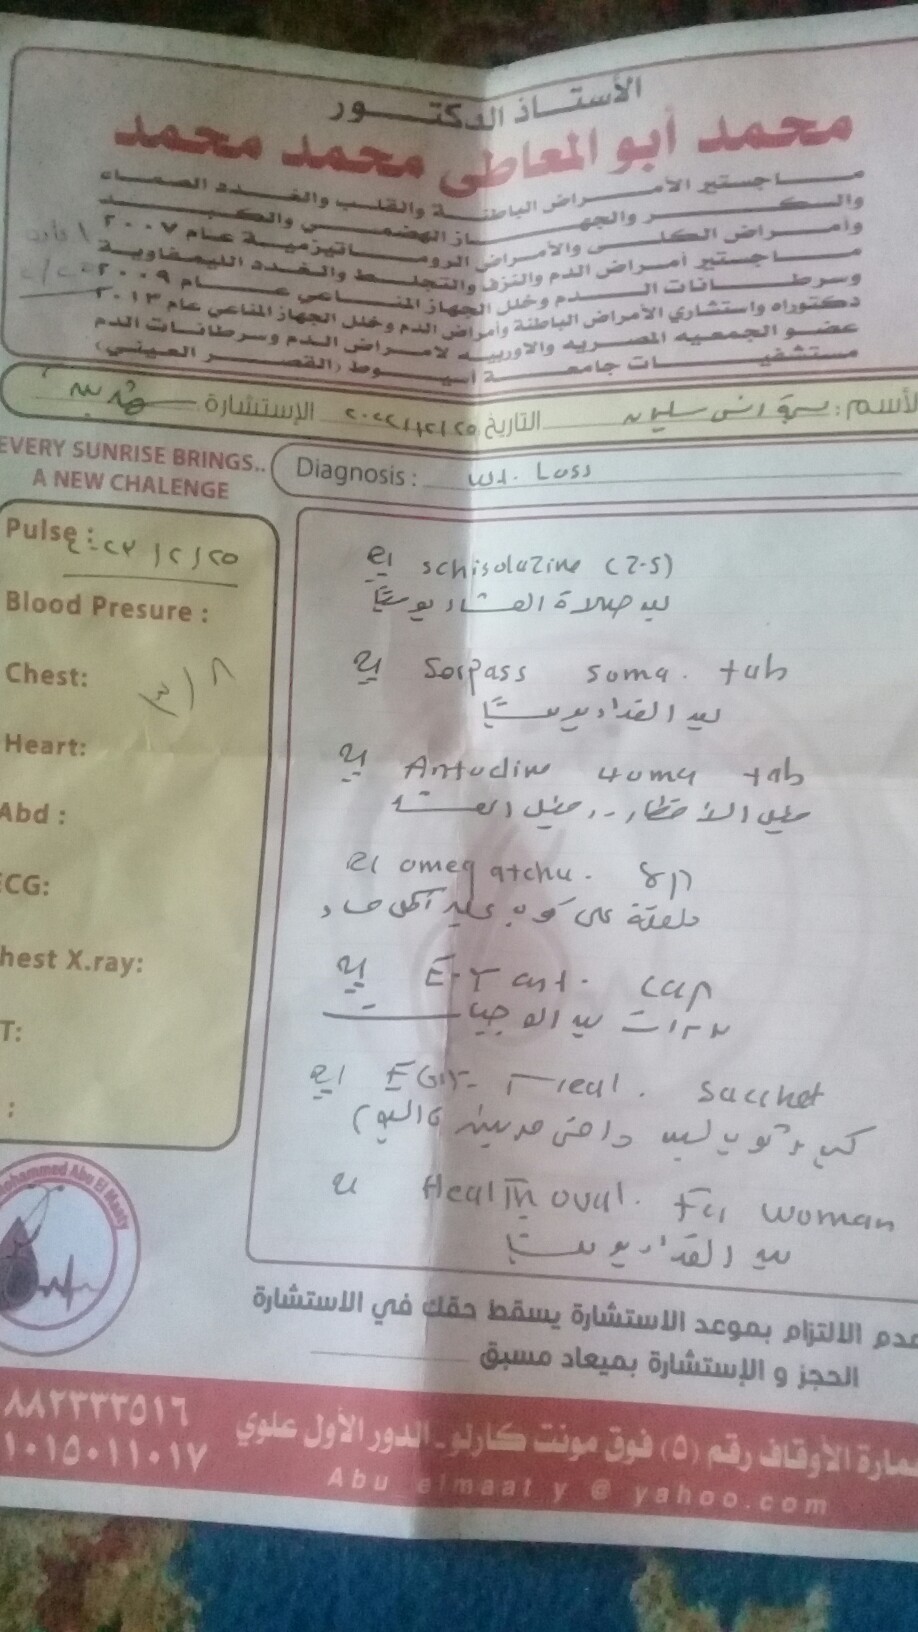 الأستاذ الدكتور
محمد أبو المعاطى محمد محمد
ماجستير الأمراض الباطنة والقلب والغدد الصماء
والسكر والجهاز الهضمي والكبد
وأمراض الكلى والأمراض الروماتيزمية عام ٢٠٠٧
ماجستير أمراض الدم والنزف والتجلط والغدد الليمفاوية
وسرطانات الدم وخلل الجهاز المناعي عام ٢٠٠٩
دكتوراه واستشاري الأمراض الباطنة وأمراض الدم وخلل الجهاز المناعي عام ٢٠١٣
عضو الجمعيه المصريه والاوربيه لامراض الدم وسرطانات الدم
مستشفيات جامعة أسيوط (القصر العيني)
لأسم: التاريخ ٢٠٢٢/٢/٢٥ الإستشارة
EVERY SUNRISE BRINGS..
A NEW CHALENGE
Diagnosis: wt. Loss
Pulse :
٢٥/٢/
Blood Presure :
Chest:
٣/٨
Heart:
Abd :
ECG:
hest X.ray:
T:
:
schisolazine (2-5)
بعد صلاة العشاء يوميا
Sorpass 50mg. tab
بعد الغداء يوميا
Antodine 40mg tab
قبل الافطار .. قبل العشاء
omegatchu. sp
ملعقة على كوب
cap
بعد الوجبات
EGY- Heal. sacchet
اليوم
Health oval. For woman
بعد الغداء يوميا
Mohammed Abu El Maaty
عدم الالتزام بموعد الاستشارة يسقط حقك في الاستشارة
الحجز و الإستشارة بميعاد مسبق
٨٨٢٣٣٣٥١٦
١٠١٥٠١١٠١٧
عمارة الأوقاف رقم (٥) فوق مونت كارلو - الدور الأول علوي
Abu elmaat y @ yahoo.com